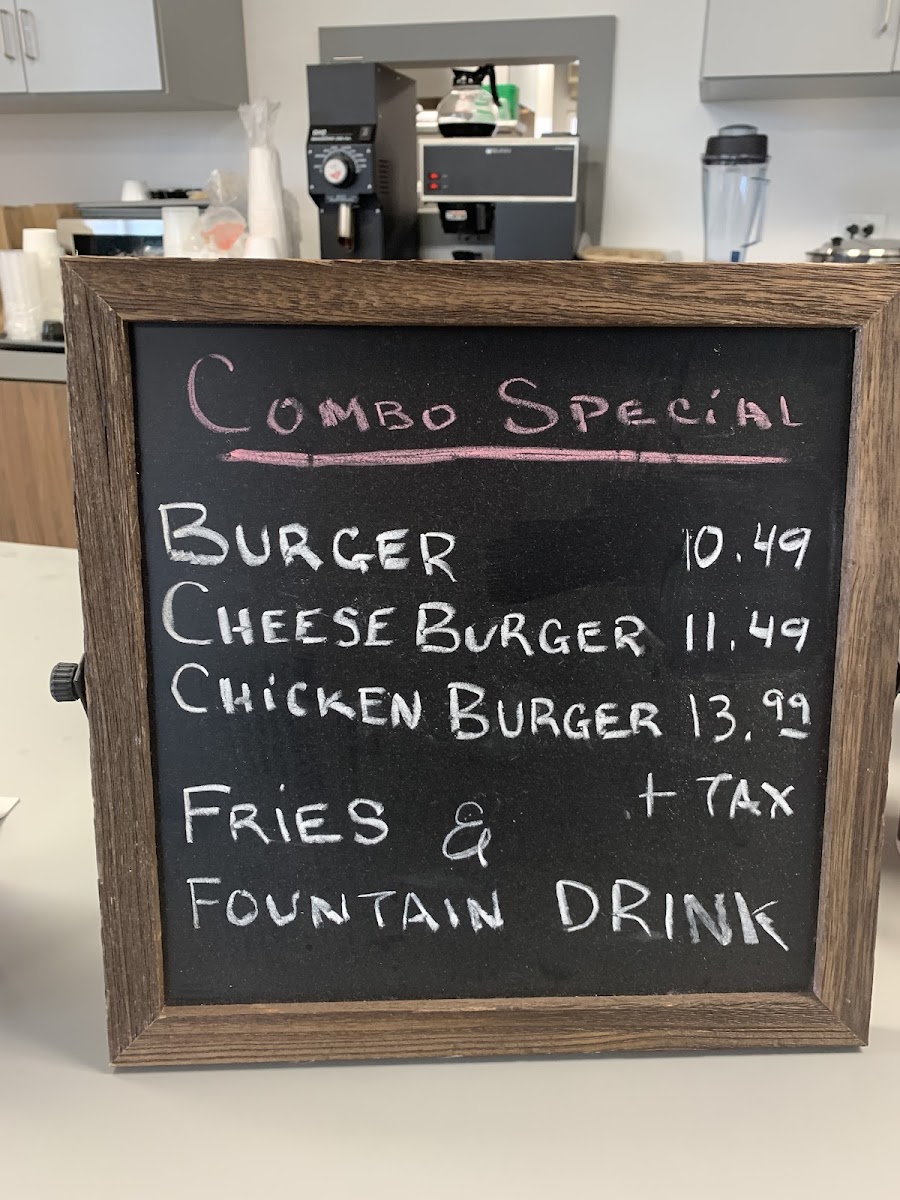 COMBO SPECiAL
BURGER 10.49
CHEESE BURGER 11.49
CHiCKEN BURGER 13.99
+ TAX
FRiES &
FOUNTAIN DRINK